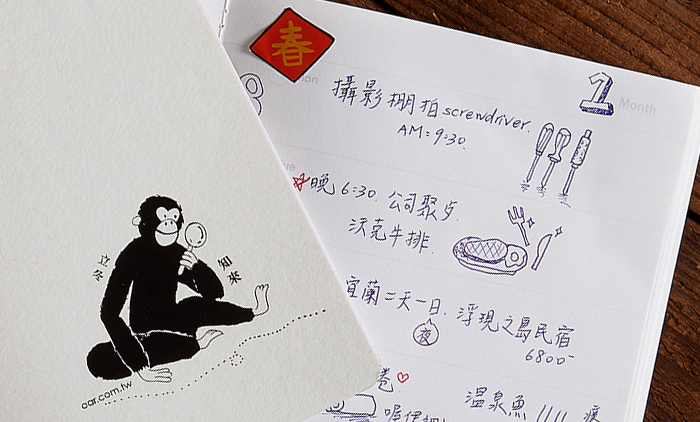 春
1
Month
攝影棚拍 screwdriver.
AM: 9:30.
晚 6:30. 公司聚歺.
沃克牛排.
宜蘭二天一日. 浮現之島民宿
夜
6800
卷
溫泉魚
立冬
知來
oar.com.tw